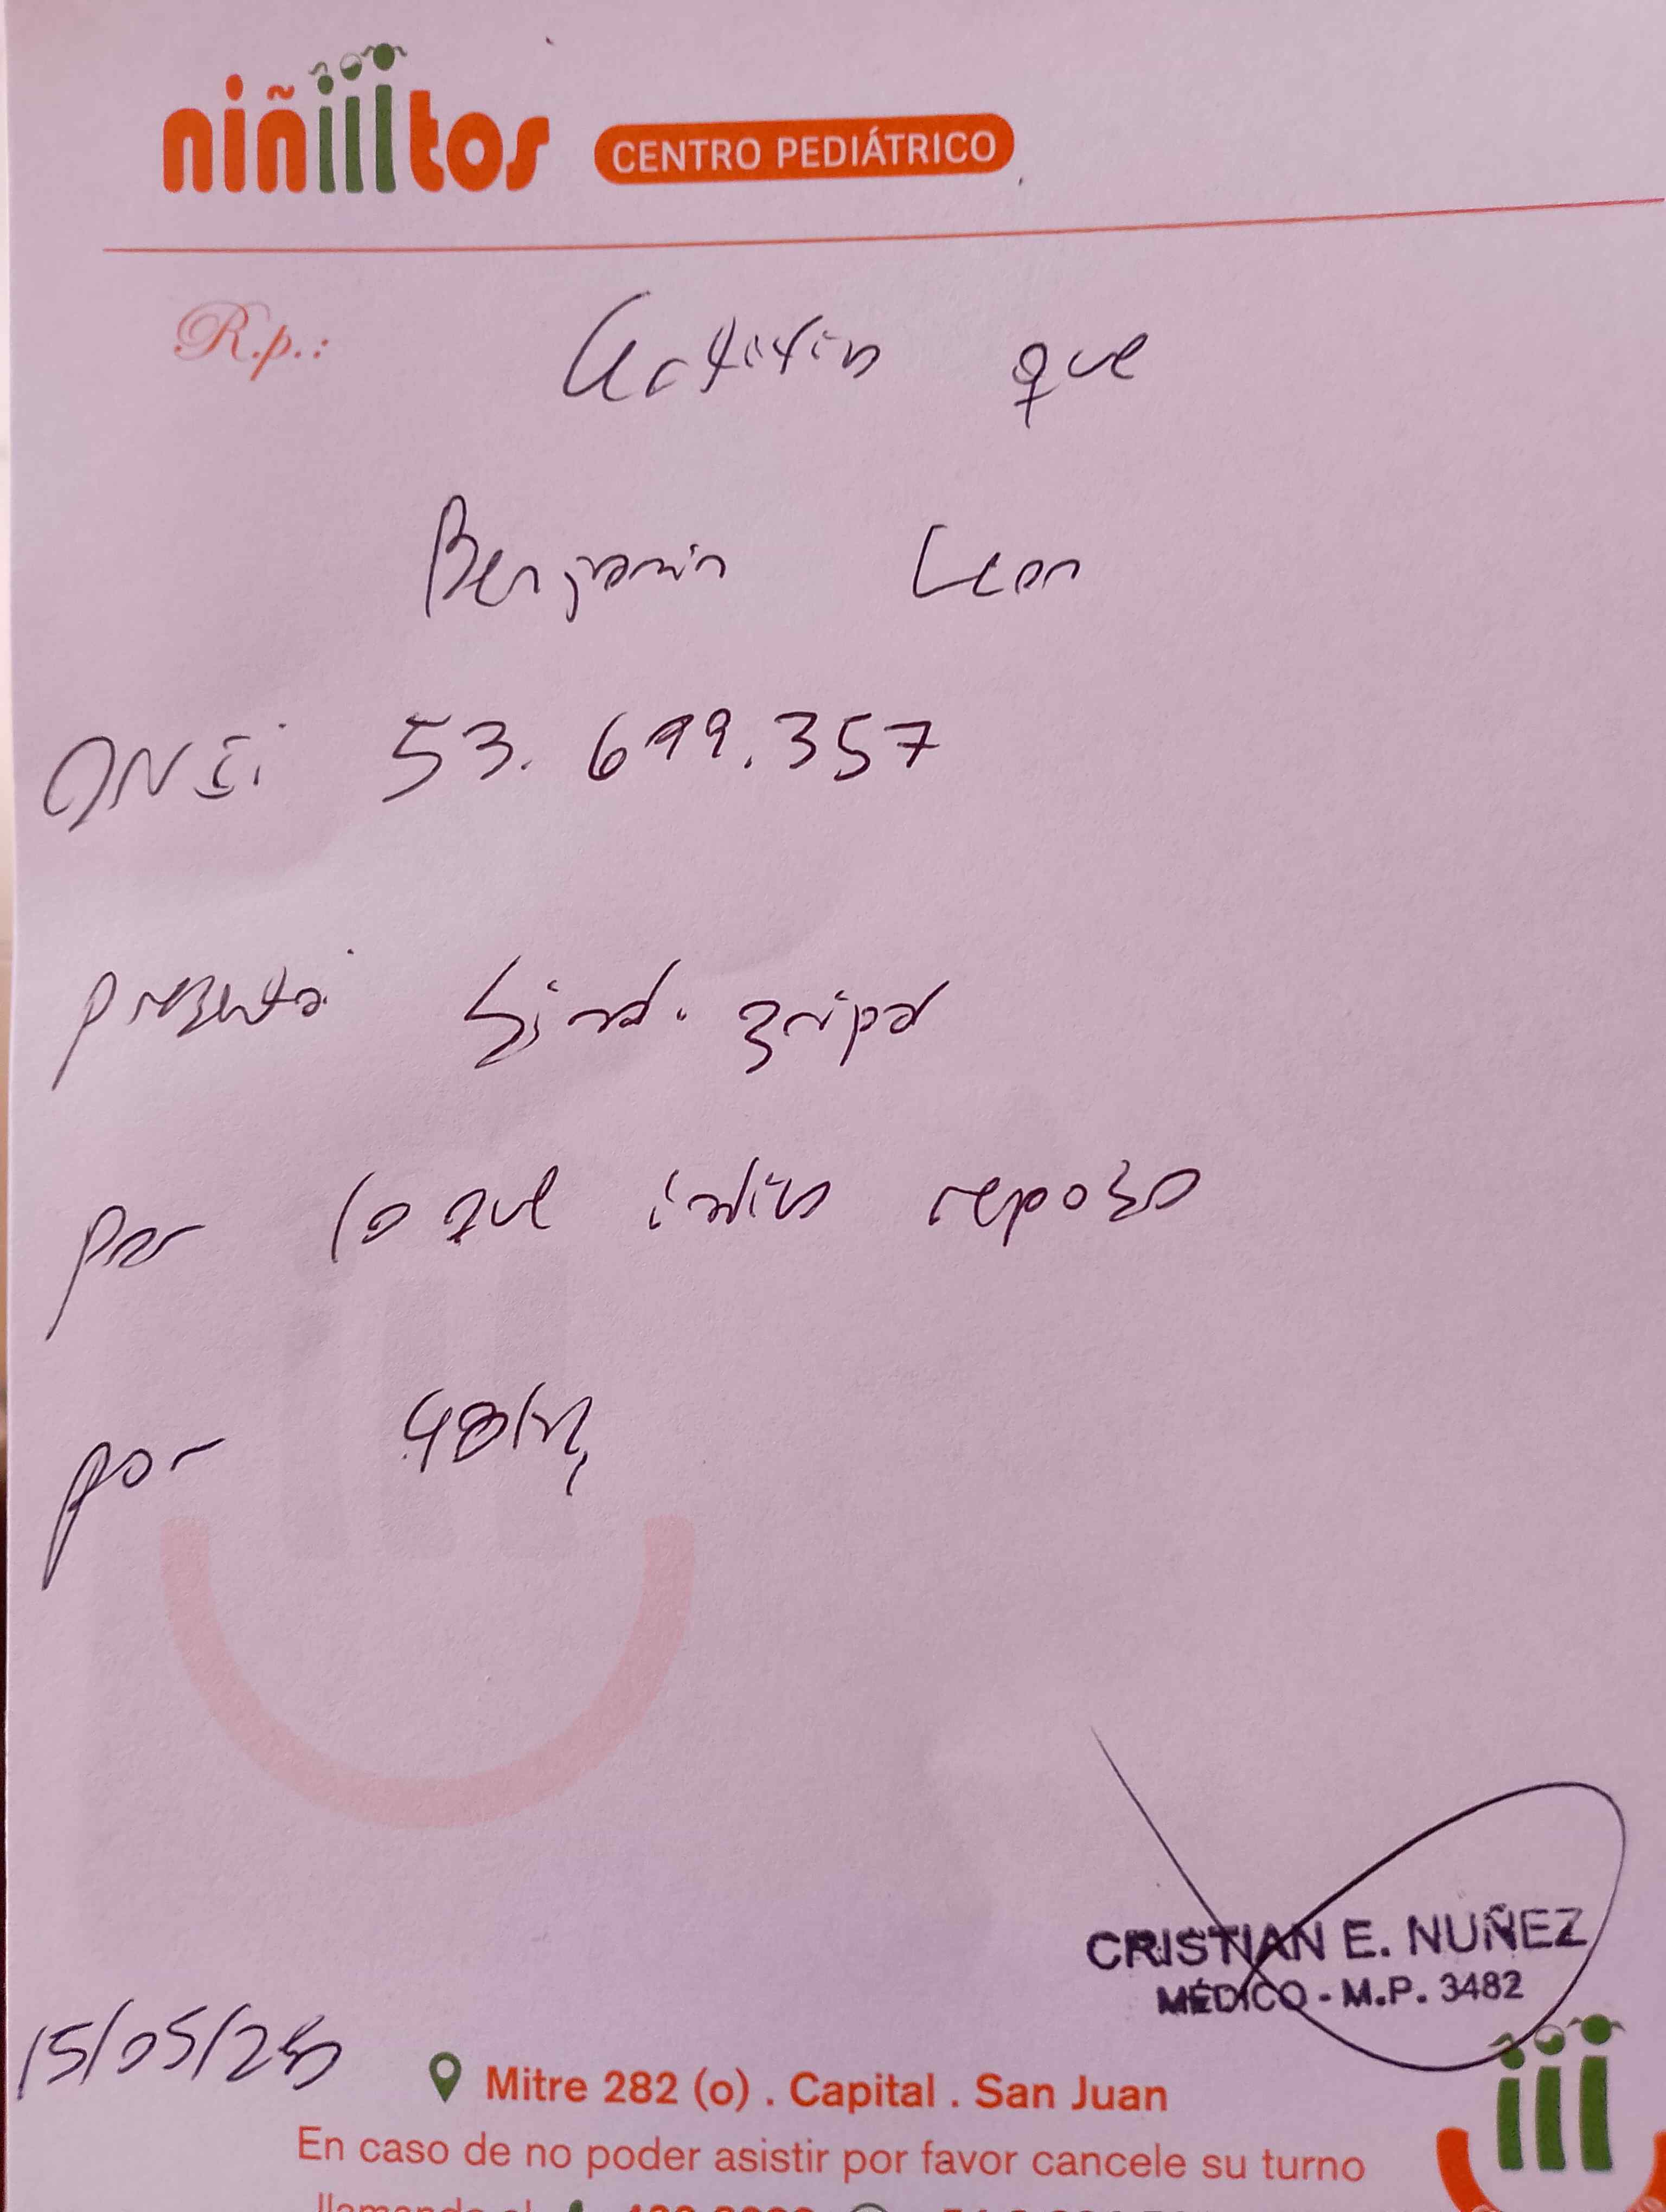 niñiiitos CENTRO PEDIÁTRICO
R.p.: Certifico que
Benjamin Leon
DNI: 53.699.357
presenta Sind. gripal
por lo que indico reposo
por 48hs
CRISTIAN E. NUÑEZ
MÉDICO - M.P. 3482
15/05/25
Mitre 282 (o) . Capital . San Juan
En caso de no poder asistir por favor cancele su turno
llamando al